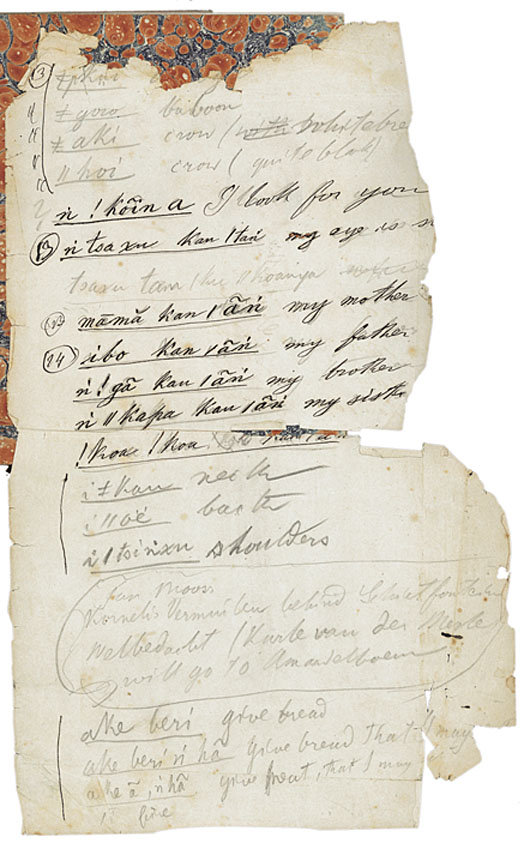 13
ǂgoro baboon
ǂaki crow (with white bre
ǁhoi crow (quite blak)
ń !kõin a I look for you
13 ń tsaxu kan ǀtań my eye is s
tsaxu tan
13 māmă kan ǀãń my mother
14 ibo kan ǀãń my father
ń !gã kan ǀãń my broker
ń ǁkaχa kan ǀãń my siste
!koa !koa
i ǂkau neck
i ǁõë back
i ǁtsińxu shoulders
Jan Moos
Kornelis Vermeulen behind
Welbedacht (Karle van der Merle
will go to Amandelboem
ake beri give bread
ake beri ń hã give bread that I may
ake ã, ń hã give meat, that I may
fire